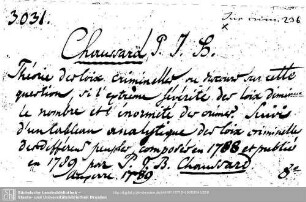 3031.
Chaussard, P. J. B.
Théorie des loix criminelles ou discours sur cette
question, si l'extrême sévérité des loix diminue
le nombre et l'énormité des crimes. Suivi
d'un tableau analytique des loix criminelles
des différens peuples, composés en 1788 et publié
en 1789 par P. J. B. Chaussard
Auxerre. 1789. 8º
Sächsische Landesbibliothek -
Staats- und Universitätsbibliothek Dresden